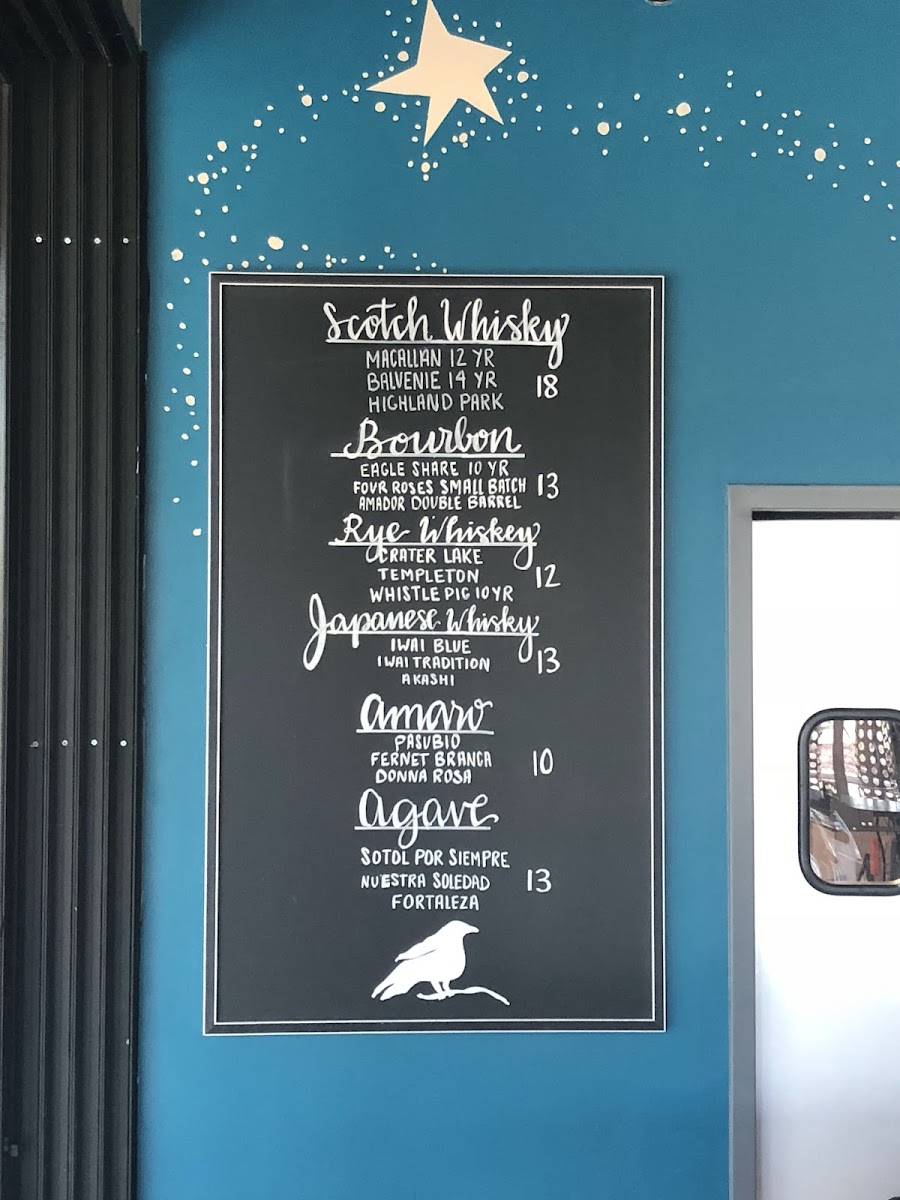 Scotch Whisky
MACALLAN 12 YR
BALVENIE 14 YR
18
HIGHLAND PARK
Bourbon
EAGLE SHARE 10 YR
FOUR ROSES SMALL BATCH 13
AMADOR DOUBLE BARREL
Rye Whiskey
CRATER LAKE
TEMPLETON 12
WHISTLE PIG 10 YR
Japanese Whisky
IWAI BLUE
IWAI TRADITION 13
AKASHI
Amaro
PASUBIO
FERNET BRANCA 10
DONNA ROSA
Agave
SOTOL POR SIEMPRE
NUESTRA SOLEDAD 13
FORTALEZA